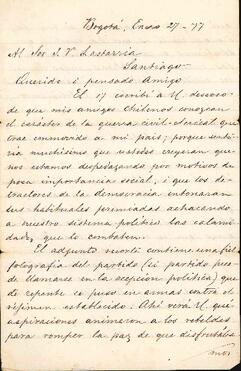 Bogotá, Enero 27-77
Al Sor J. V. Lastarria
Santiago
Querido i pensado Amigo
El 17 escribí a U. deseoso
de que mis amigos Chilenos conozcan
el carácter de la guerra civil-clerical que
trae conmovido a mi país; porque sentiría
muchísimo que ustedes creyeran que
nos estamos despedazando por motivos de
poca importancia social, i que los de-
tractores de la democracia entonaran
sus habituales achacando
a nuestro sistema político las calami-
dades que lo combaten.
El adjunto contiene una fiel
fotografía del partido (si partido pue-
de llamarse en la acepción política) que
de repente se puso en armas contra el
régimen establecido. Ahí verá U. qué
aspiraciones animaron a los rebeldes
para romper la paz de que disfrutába-
mos